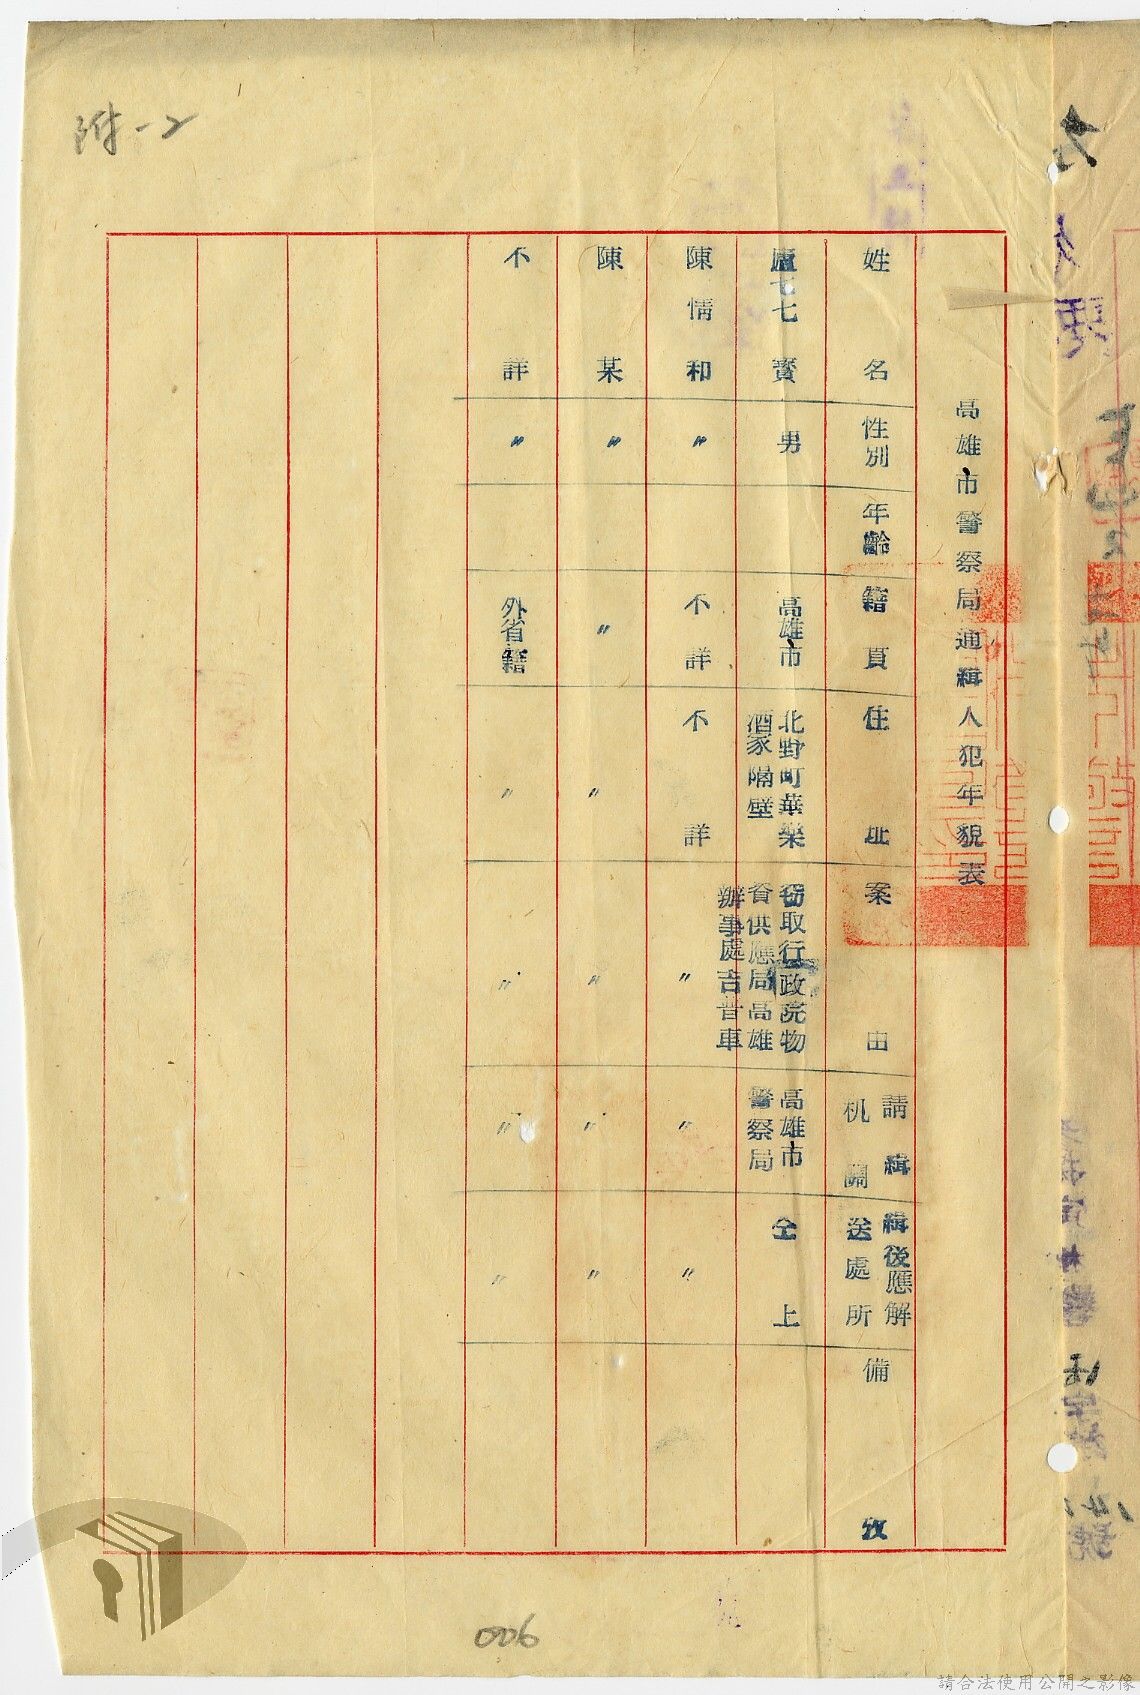 附-2
高雄市警察局通緝人犯年貌表
姓名 性別 年齡 籍貫 住址 案由 請緝机關 緝後應解送處所 備攷
盧七七寶 男 高雄市 北野町華樂酒家隔壁 竊取行政院物資供應局高雄辦事處吉普車 高雄市警察局 仝上
陳情和 〃 不詳 不詳 〃 〃 〃
陳某 〃 〃 〃 〃 〃 〃
不詳 〃 外省籍 〃 〃 〃 〃
006
請合法使用公開之影像